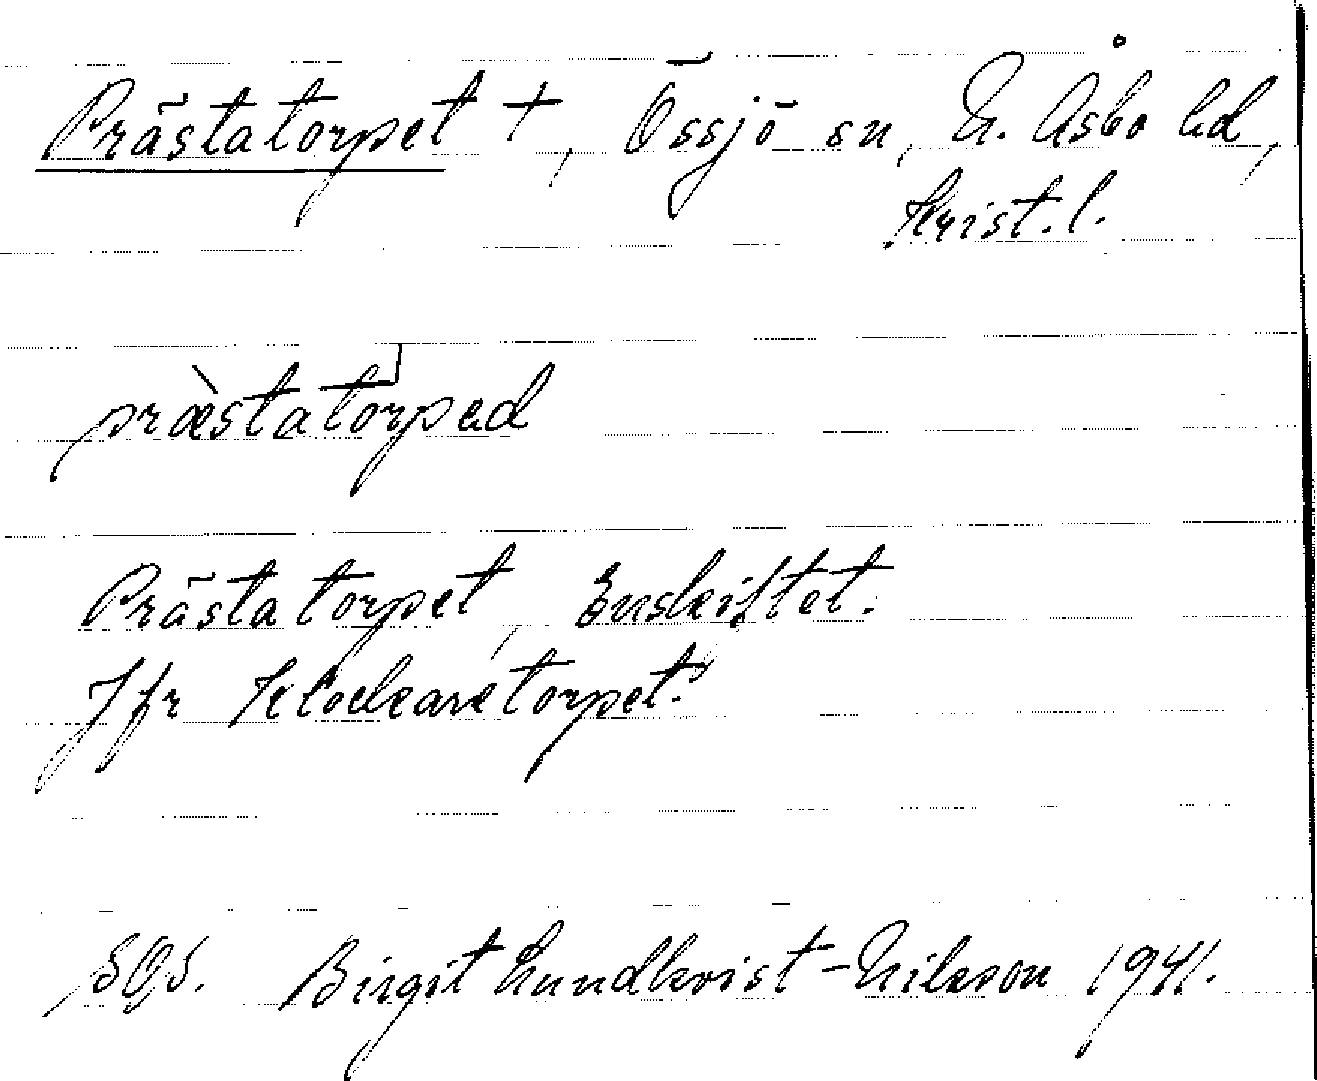 Prästatorpet +, Össjö sn, N. Åsbo hd,
Krist. l.
præ̀statorpəd
Prästatorpet, Enskiftet.
Jfr Klockaretorpet.
SOS. Birgit Lundkvist-Nilsson 1941.